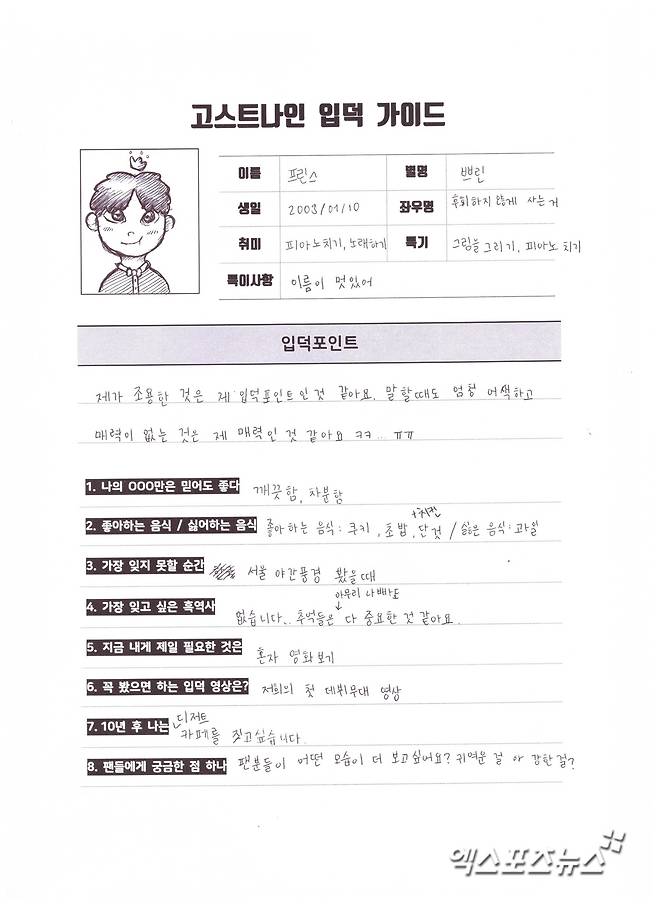 고스트나인 입덕 가이드
이름 프린스 별명 쁘린
생일 2003/01/10 좌우명 후회하지 않게 사는 거
취미 피아노치기, 노래하기 특기 그림을그리기, 피아노 치기
특이사항 이름이 멋있어
입덕포인트
제가 조용한 것은 제 입덕포인트인 것 같아요. 말할때도 엄청 어색하고
매력이 없는 것은 제 매력인 것 같아요 ㅋㅋ... ㅠㅠ
1. 나의 OOO만은 믿어도 좋다 깨끗함, 차분함
+치킨
2. 좋아하는 음식 / 싫어하는 음식 좋아하는 음식: 쿠키, 초밥, 단것 / 싫은 음식: 과일
3. 가장 잊지 못할 순간 서울 야간풍경 봤을때
아무리 나빠도
4. 가장 잊고 싶은 흑역사 없습니다.. 추억들은 다 중요한 것 같아요.
5. 지금 내게 제일 필요한 것은 혼자 영화보기
6. 꼭 봤으면 하는 입덕 영상은? 저희의 첫 데뷔무대 영상
디저트
7. 10년 후 나는 카페를 짓고싶습니다.
8. 팬들에게 궁금한 점 하나 팬분들이 어떤 모습이 더 보고싶어요? 귀여운 걸 아 강한 걸?
엑스포츠뉴스